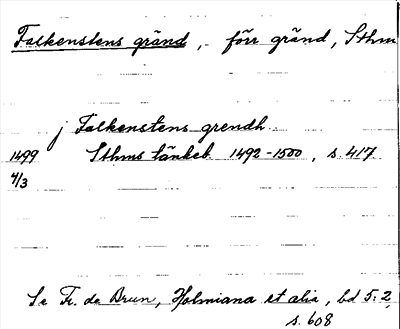 Falkenstens gränd, - förr gränd, Sthm
j Falkenstens grendh.
1499 Sthms tänkeb. 1492-1500, s. 417
4/3
Se Fr. de Brun, Holmiana et alia, bd 5:2,
s. 608